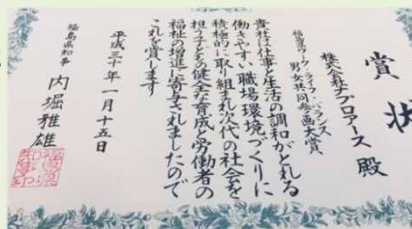 賞状
福島県ワーク・ライフ・バランス
男女共同参画大賞
株式会社ナプロアース 殿
貴社は仕事と生活の調和がとれる
働きやすい職場環境づくりに
積極的に取り組まれ次代の社会を
担う子どもの健全な育成と労働者の
福祉の増進に寄与されましたので
これを賞します
平成三十年一月十五日
福島県知事 内堀雅雄